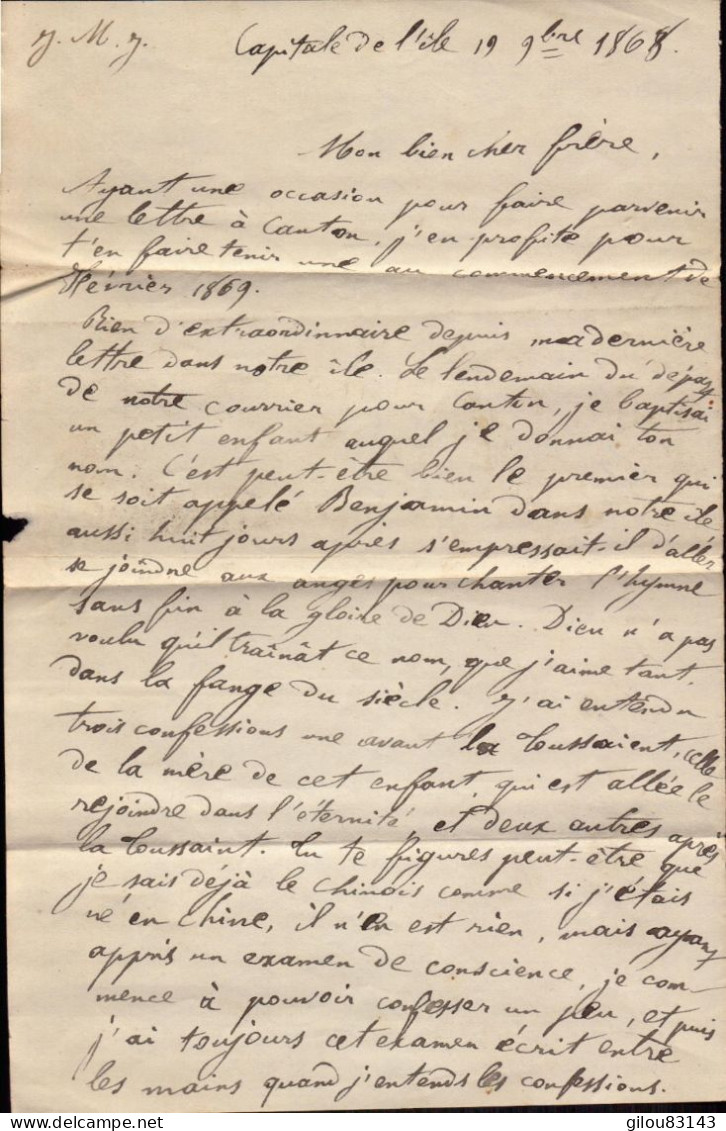 J. M. J. Capitale de l'île 19 9bre 1868.
Mon bien cher frère,
Ayant une occasion pour faire parvenir
une lettre à Canton, j'en profite pour
t'en faire tenir une au commencement de
Février 1869.
Rien d'extraordinnaire depuis ma dernière
lettre dans notre île. Le lendemain du départ
de notre courrier pour Canton, je baptisai
un petit enfant auquel je donnai ton
nom. C'est peut-être bien le premier qui
se soit appelé Benjamin dans notre île
aussi huit jours après s'empressait-il d'aller
se joindre aux anges pour chanter l'hymne
sans fin à la gloire de Dieu. Dieu n'a pas
voulu qu'il traînât ce nom, que j'aime tant,
dans la fange du siècle. J'ai entendu
trois confessions une avant la Toussaient, celle
de la mère de cet enfant, qui est allée le
rejoindre dans l'éternité, et deux autres après
la Toussaint. Tu te figures peut-être que
je sais déjà le Chinois comme si j'étais
né en Chine, il n'en est rien, mais ayant
appris un examen de conscience, je com-
mence à pouvoir confesser un peu, et puis
j'ai toujours cet examen écrit entre
les mains quand j'entends les confessions.
delcampe.net
gilou83143